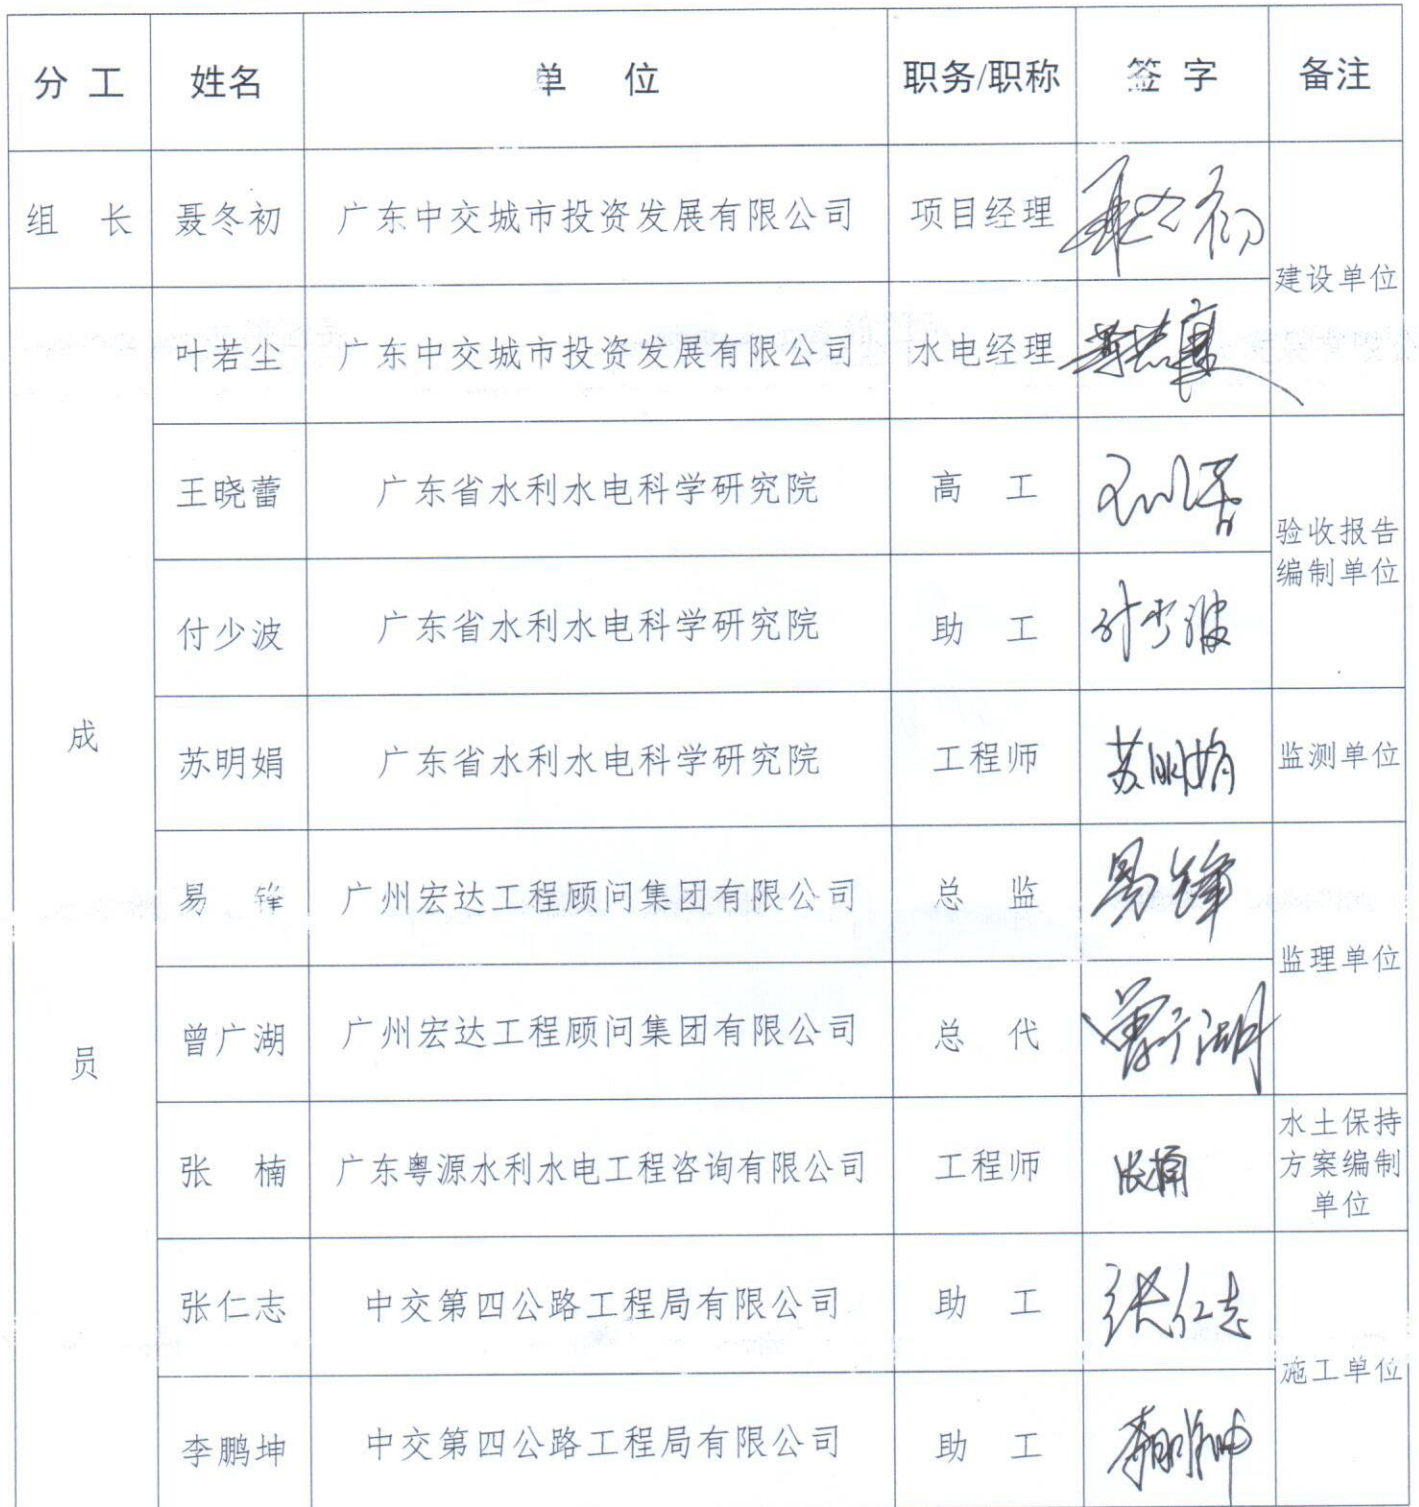 分 工 姓名 单 位 职务/职称 签 字 备注
组 长 聂冬初 广东中交城市投资发展有限公司 项目经理
建设单位
叶若尘 广东中交城市投资发展有限公司 水电经理
王晓蕾 广东省水利水电科学研究院 高 工
验收报告
编制单位
付少波 广东省水利水电科学研究院 助 工 付少波
成
苏明娟 广东省水利水电科学研究院 工程师 苏明娟 监测单位
易 锋 广州宏达工程顾问集团有限公司 总 监 易锋
监理单位
曾广湖 广州宏达工程顾问集团有限公司 总 代 曾广湖
员
张 楠 广东粤源水利水电工程咨询有限公司 工程师 张楠
水土保持
方案编制
单位
张仁志 中交第四公路工程局有限公司 助 工 张仁志
施工单位
李鹏坤 中交第四公路工程局有限公司 助 工 李鹏坤